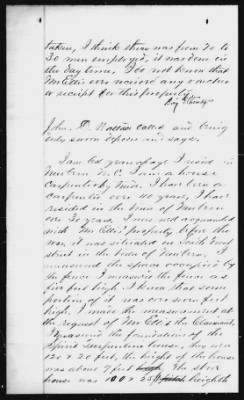 taken, I think there was from 20 to
30 men employed, it was done in
the day time, I do not know that
Mr Ellis ever received any voucher
or receipt for this property.
John D. Walters called and being
duly sworn deposes and says.
I am 60 years of age I reside in
New Bern N.C. I am a house
Carpenter by trade. I have been a
carpenter over 40 years, I have
resided in the town of New Bern
over 30 years. I was well acquainted
with Mr Ellis property before the
war, it was situated on South Front
street in the town of New Bern. I
measured the space occupied by
the fence I measure the fence as
five feet high I know that some
portion of it was over seven feet
high. I made the measurement at
the request of Mr Ellis the Claimant.
I measured the foundations of the
Spirit Turpentine house, this was
120 x 20 feet, the height of the house
was about 9 feet. The store
house was 100 x 25 heighth